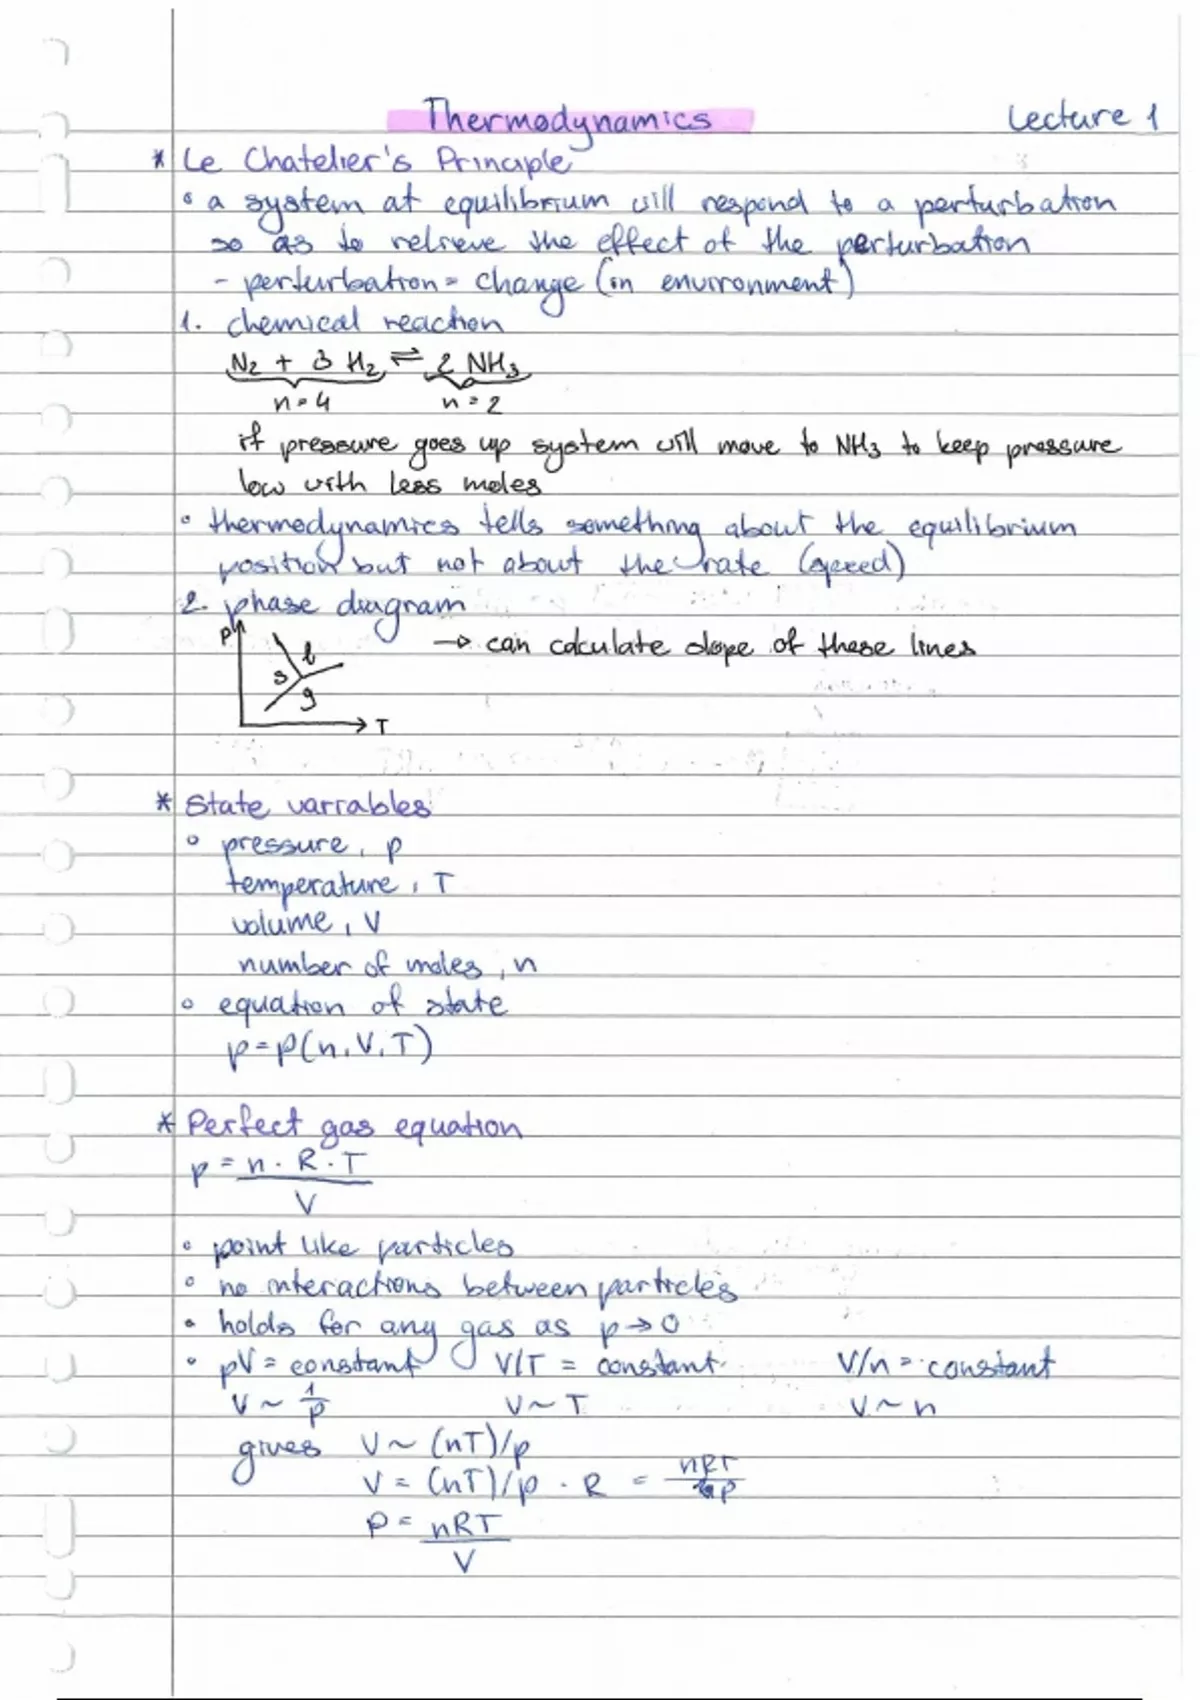 Thermodynamics
Lecture 1
* Le Chatelier's Principle
◦ a system at equilibrium will respond to a perturbation
so as to relrieve the effect of the perturbation
- perturbation = change (in environment)
1. chemical reaction
N₂ + 3 H₂ ⇌ 2 NH₃
n=4 n=2
if pressure goes up system will move to NH₃ to keep pressure
low with less moles
◦ thermodynamics tells something about the equilibrium
position but not about the rate (speed)
2. phase diagram
p
→ can calculate slope of these lines
l
s
g
T
* State variables
◦ pressure, p
temperature, T
volume, V
number of moles, n
◦ equation of state
p=p(n,V,T)
* Perfect gas equation
p = n · R · T
V
◦ point like particles
◦ no interactions between particles
◦ holds for any gas as p→0
◦ pV = constant V/T = constant V/n = constant
V ~ 1/p V ~ T V ~ n
gives V ~ (nT)/p
V = (nT)/p · R = nRT/p
P = nRT
V